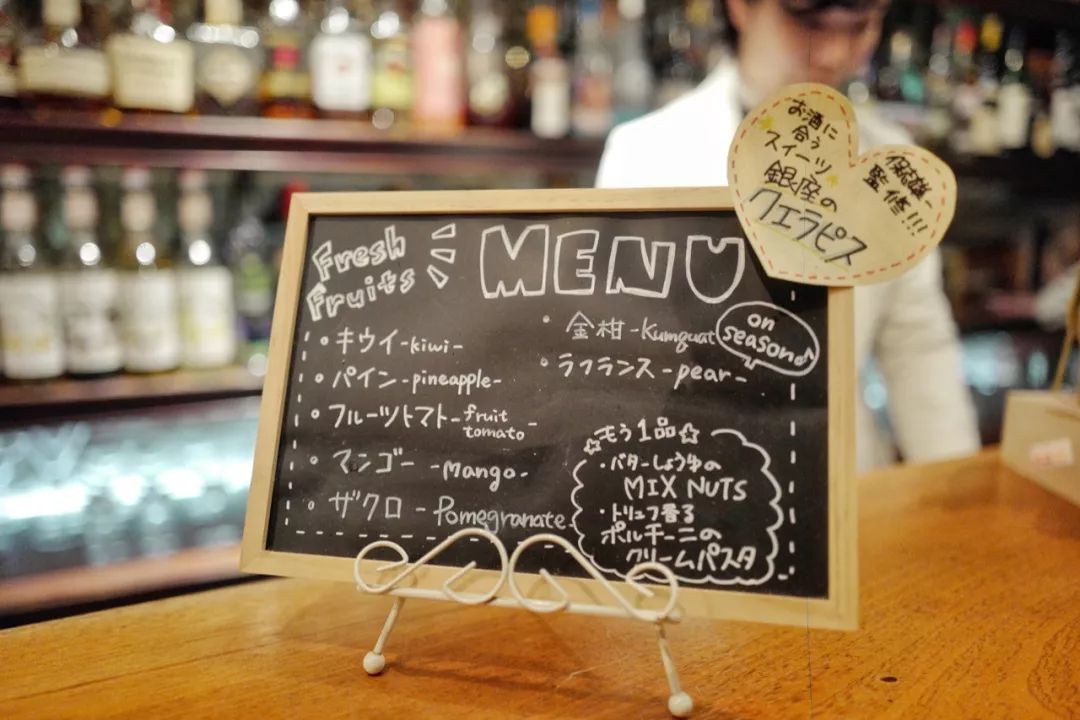 Fresh
Fruits
MENU
・キウイ-kiwi-
・パイン-pineapple-
・フルーツトマト-fruit
tomato-
・マンゴー -Mango-
・ザクロ -Pomegranate-
・金柑-Kumquat
on
season♪
・ラフランス-pear-
☆もう1品☆
・バターしょうゆの
MIX NUTS
・トリュフ香る
ポルチーニの
クリームパスタ
お酒に
合う
スイーツ
銀座の
クエラピス
保志雄一
監修!!!